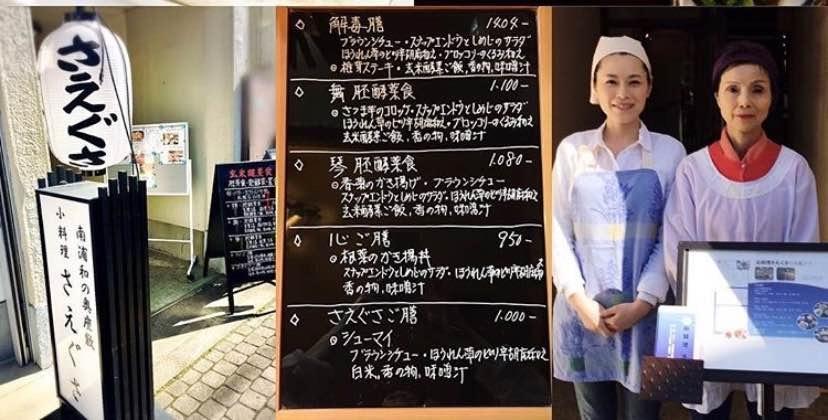 さえぐさ
南浦和の奥座敷
小料理 さえぐさ
◇ 解毒膳 1404-
ブラウンシチュー・スナップエンドウとしめじのサラダ
ほうれん草のピリ辛胡麻和え・ブロッコリーのくるみ和え
◎ 椎茸ステーキ・玄米酵素ご飯,香の物,味噌汁
◇ 舞 胚酵素食 1.100-
◎ さつま芋のコロッケ・スナップエンドウとしめじのサラダ
ほうれん草のピリ辛胡麻和え・ブロッコリーのくるみ和え
玄米酵素ご飯,香の物,味噌汁
◇ 琴 胚酵素食 1.080-
◎ 春菊のかき揚げ・ブラウンシチュー
スナップエンドウとしめじのサラダ,ほうれん草のピリ辛胡麻和え
玄米酵素ご飯,香の物,味噌汁
◇ 心ご膳 950-
◎ 根菜のかき揚丼
スナップエンドウとしめじのサラダ・ほうれん草のピリ辛胡麻和え
香の物,味噌汁
◇ さえぐさご膳 1.000-
◎ シューマイ
ブラウンシチュー・ほうれん草のピリ辛胡麻和え
白米,香の物,味噌汁